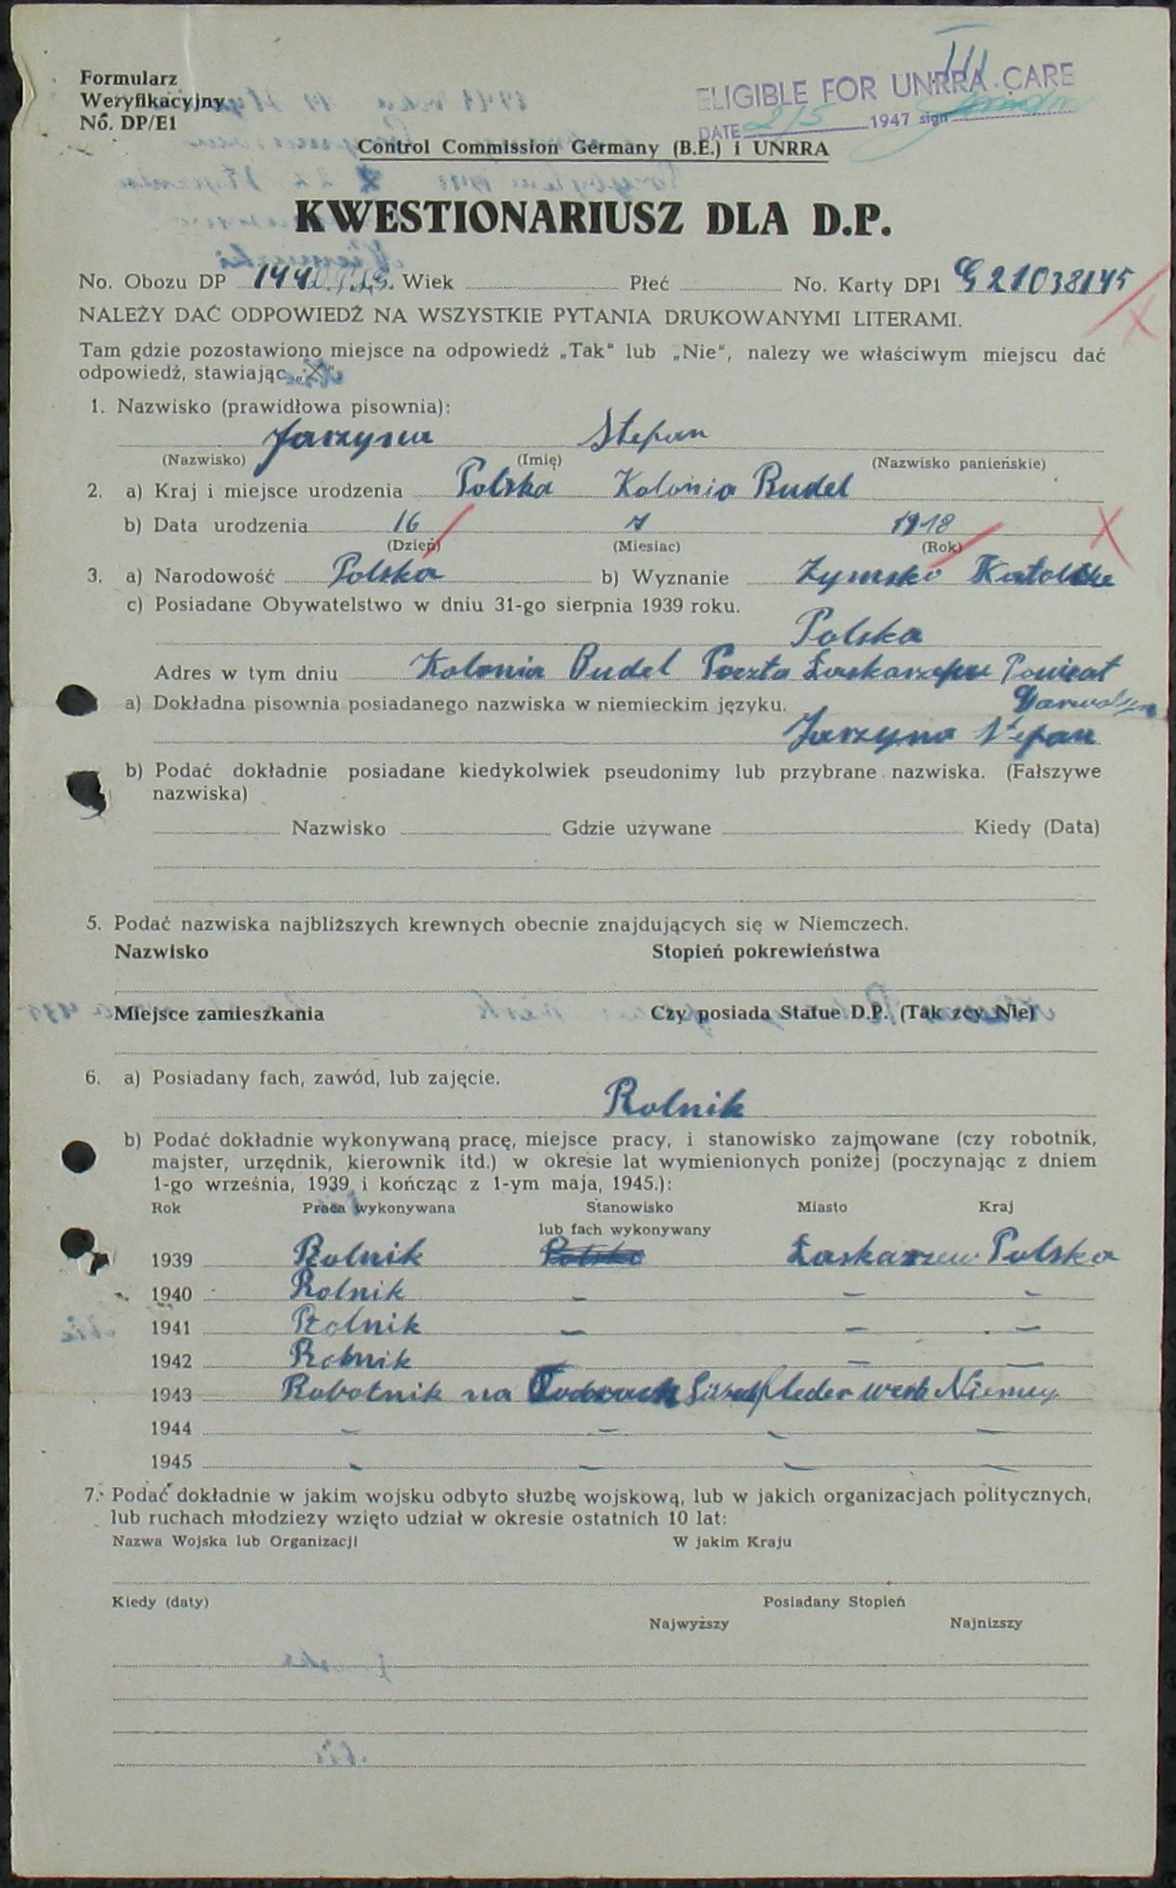 Formularz
Weryfikacyjny
No. DP/E1
III
ELIGIBLE FOR UNRRA CARE
DATE 2/5 1947 sign
Control Commission Germany (B.E.) i UNRRA
KWESTIONARIUSZ DLA D.P.
No. Obozu DP Wiek Płeć No. Karty DP1 G21038145
NALEŻY DAĆ ODPOWIEDŹ NA WSZYSTKIE PYTANIA DRUKOWANYMI LITERAMI.
Tam gdzie pozostawiono miejsce na odpowiedź „Tak" lub „Nie", nalezy we właściwym miejscu dać
odpowiedź, stawiając „X"
1. Nazwisko (prawidłowa pisownia):
Jarzyna Stefan
(Nazwisko) (Imię) (Nazwisko panieńskie)
2. a) Kraj i miejsce urodzenia Polska Kolonia Budel
b) Data urodzenia 16 7 1918
(Dzień) (Miesiac) (Rok)
3. a) Narodowość Polska b) Wyznanie Zymsko Katolicke
c) Posiadane Obywatelstwo w dniu 31-go sierpnia 1939 roku.
Polska
Adres w tym dniu Kolonia Budel Poczta Łaskarzew Powieat
Garwolyn
a) Dokładna pisownia posiadanego nazwiska w niemieckim języku.
Jarzyna Stefan
b) Podać dokładnie posiadane kiedykolwiek pseudonimy lub przybrane nazwiska. (Fałszywe
nazwiska)
Nazwisko Gdzie używane Kiedy (Data)
5. Podać nazwiska najbliższych krewnych obecnie znajdujących się w Niemczech.
Nazwisko Stopień pokrewieństwa
Miejsce zamieszkania Czy posiada Statue D.P. (Tak zcy Nie)
6. a) Posiadany fach, zawód, lub zajęcie.
Rolnik
b) Podać dokładnie wykonywaną pracę, miejsce pracy, i stanowisko zajmowane (czy robotnik,
majster, urzędnik, kierownik itd.) w okresie lat wymienionych poniżej (poczynając z dniem
1-go września, 1939 i kończąc z 1-ym maja, 1945.):
Rok Praca wykonywana Stanowisko Miasto Kraj
lub fach wykonywany
1939 Rolnik Polska Łaskarzew Polska
1940 Rolnik – – –
1941 Rolnik – – –
1942 Rolnik – –
1943 Robotnik na Niemcy
1944 – – – –
1945 – – – –
7. Podać dokładnie w jakim wojsku odbyto służbę wojskową, lub w jakich organizacjach politycznych,
lub ruchach młodzieży wzięto udział w okresie ostatnich 10 lat:
Nazwa Wojska lub Organizacji W jakim Kraju
Kiedy (daty) Posiadany Stopień
Najwyższy Najnizszy